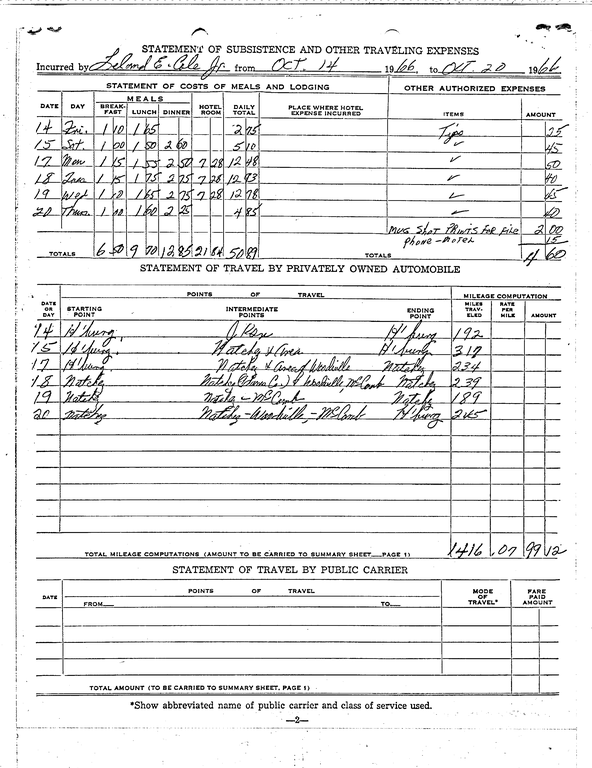 STATEMENT OF SUBSISTENCE AND OTHER TRAVELING EXPENSES
Incurred by Leland E. Cole Jr. from OCT. 14 1966, to OCT. 20 1966
STATEMENT OF COSTS OF MEALS AND LODGING OTHER AUTHORIZED EXPENSES
DATE DAY MEALS BREAK-FAST LUNCH DINNER HOTEL ROOM DAILY TOTAL PLACE WHERE HOTEL EXPENSE INCURRED ITEMS AMOUNT
14 Fri. 1 10 1 65 2 75 Tips 25
15 Sat. 1 00 1 50 2 60 5 10 ✓ 45
17 Mon 1 15 1 55 2 50 7 28 12 48 ✓ 50
18 Tues 1 15 1 75 2 75 7 28 12 93 ✓ 40
19 Wed 1 10 1 65 2 75 7 28 12 78 ✓ 65
20 Thurs. 1 00 1 60 2 25 4 85 ✓ 40
MUG SHOT PRINTS FOR FILE 2 00
Phone - MOTEL 15
TOTALS 6 50 9 70 12 85 21 84 50 89 TOTALS 4 60
STATEMENT OF TRAVEL BY PRIVATELY OWNED AUTOMOBILE
POINTS OF TRAVEL MILEAGE COMPUTATION
DATE OR DAY STARTING POINT INTERMEDIATE POINTS ENDING POINT MILES TRAV-ELED RATE PER MILE AMOUNT
14 H'burg. H'burg 192
15 H'burg. Natchez & Area H'burg 317
17 H'burg Natchez & Area & Woodville Natchez 234
18 Natchez Natchez & Woodville, McComb Natchez 239
19 Natchez Natchez - McComb Natchez 189
20 Natchez Natchez - Woodville, - McComb H'burg 245
TOTAL MILEAGE COMPUTATIONS (AMOUNT TO BE CARRIED TO SUMMARY SHEET PAGE 1) 1416 .07 99 12
STATEMENT OF TRAVEL BY PUBLIC CARRIER
DATE POINTS OF TRAVEL MODE OF TRAVEL* FARE PAID AMOUNT
FROM TO
TOTAL AMOUNT (TO BE CARRIED TO SUMMARY SHEET, PAGE 1)
*Show abbreviated name of public carrier and class of service used.
—2—